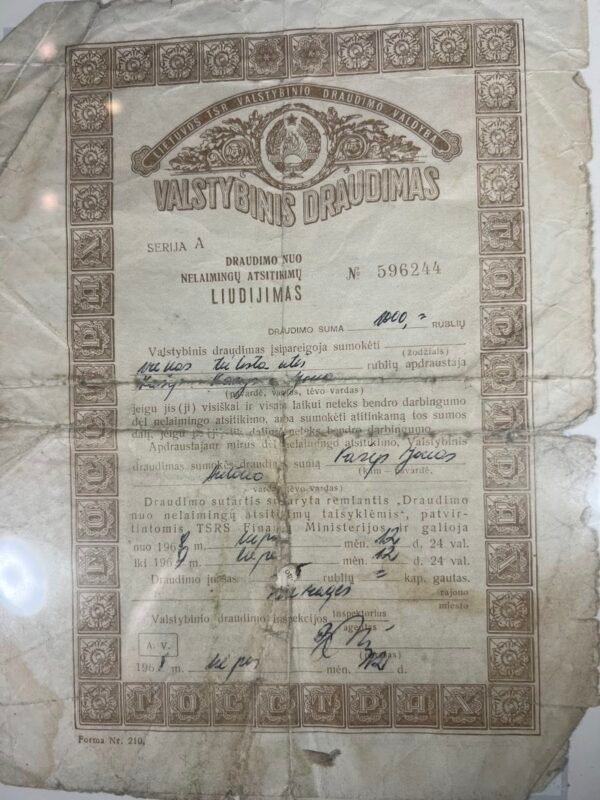 LIETUVOS TSR VALSTYBINIO DRAUDIMO VALDYBA
VALSTYBINIS DRAUDIMAS
SERIJA A
DRAUDIMO NUO
NELAIMINGŲ ATSITIKIMŲ
LIUDIJIMAS
№ 596244
DRAUDIMO SUMA 1000,= RUBLIŲ
Valstybinis draudimas įsipareigoja sumokėti
(žodžiais)
vienas tūkstantis rublių apdraustaja
(pavardė, vardas, tėvo vardas)
jeigu jis (ji) visiškai ir visam laikui neteks bendro darbingumo
dėl nelaimingo atsitikimo, arba sumokėti atitinkamą tos sumos
dalį, jeigu jis (ji) iš dalies neteks bendro darbingumo.
Apdraustajam mirus dėl nelaimingo atsitikimo, Valstybinis
draudimas sumokės draudimo sumą
(kam — pavardė,
vardas, tėvo vardas)
Draudimo sutartis sudaryta remiantis „Draudimo
nuo nelaimingų atsitikimų taisyklėmis", patvir-
tintomis TSRS Finansų Ministerijos ir galioja
nuo 196 m. liepos mėn. 12 d. 24 val.
iki 196 m. liepos mėn. 12 d. 24 val.
Draudimo įnašas rublių = kap. gautas.
rajono
miesto
Valstybinio draudimo inspekcijos inspektorius
agentas
A. V.
196 m. liepos mėn. 12 d.
ГОССТРАХ
Forma Nr. 210.